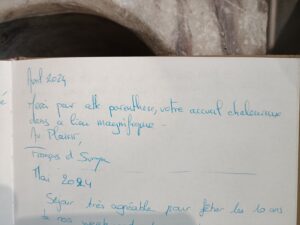 Avril 2024
Merci pour cette parenthèse, votre accueil chaleureux
dans ce lieu magnifique -
Au Plaisir,
François et
Mai 2024
Séjour très agréable pour fêter les 10 ans